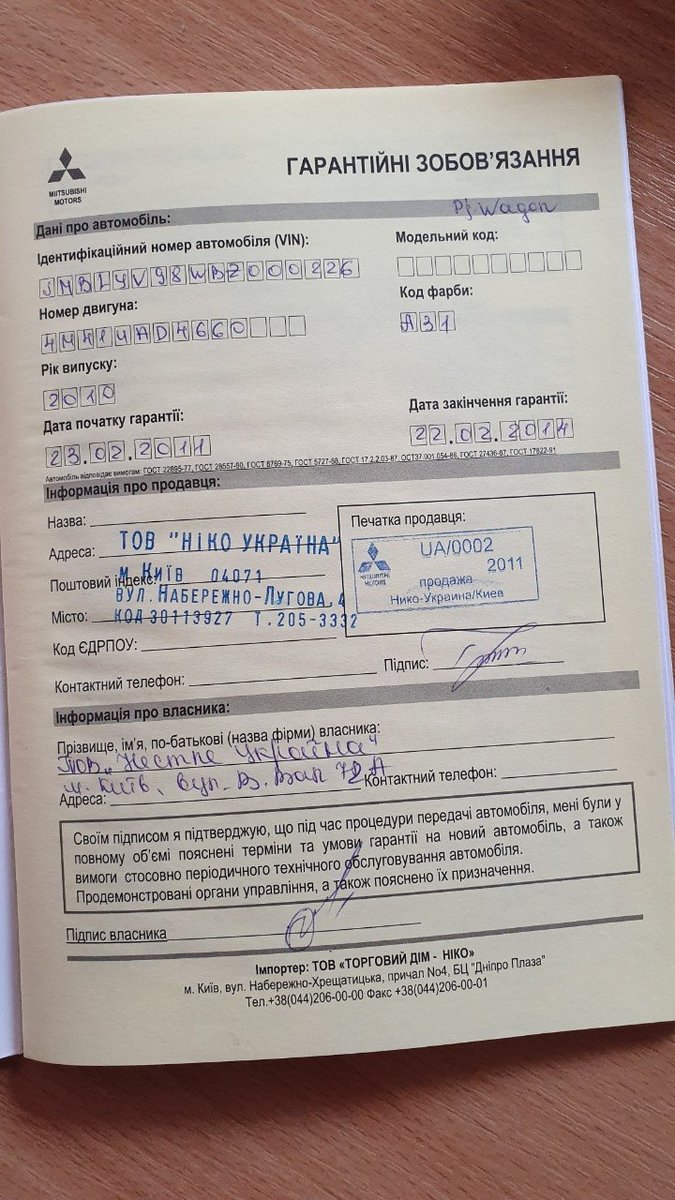 MITSUBISHI
MOTORS
ГАРАНТІЙНІ ЗОБОВ'ЯЗАННЯ
Дані про автомобіль:
Pj Wagon
Ідентифікаційний номер автомобіля (VIN):
Модельний код:
JMBLYV98WBZ000226
Номер двигуна:
Код фарби:
4M41UAD4660
A31
Рік випуску:
2010
Дата початку гарантії:
Дата закінчення гарантії:
23.02.2011
22.02.2014
Автомобіль відповідає вимогам: ГОСТ 22895-77, ГОСТ 28557-90, ГОСТ 8769-75, ГОСТ 5727-88, ГОСТ 17.2.2.03-87, ОСТ37.001.054-86, ГОСТ 27436-87, ГОСТ 17822-91
Інформація про продавця:
Назва:
Печатка продавця:
Адреса: ТОВ "НІКО УКРАЇНА"
UA/0002
2011
MITSUBISHI
MOTORS
продажа
Нико-Украина/Киев
Поштовий індекс: м. Київ 04071
вул. Набережно-Лугова, 4
Місто: код 30113927 т. 205-3332
Код ЄДРПОУ:
Підпис:
Контактний телефон:
Інформація про власника:
Прізвище, ім'я, по-батькові (назва фірми) власника:
ТОВ „Нестле Україна"
м. Київ, вул. В. Вал 72 А
Контактний телефон:
Адреса:
Своїм підписом я підтверджую, що під час процедури передачі автомобіля, мені були у
повному об'ємі пояснені терміни та умови гарантії на новий автомобіль, а також
вимоги стосовно періодичного технічного обслуговування автомобіля.
Продемонстровані органи управління, а також пояснено їх призначення.
Підпис власника
Імпортер: ТОВ «ТОРГОВИЙ ДІМ - НІКО»
м. Київ, вул. Набережно-Хрещатицька, причал No4, БЦ "Дніпро Плаза"
Тел.+38(044)206-00-00 Факс +38(044)206-00-01